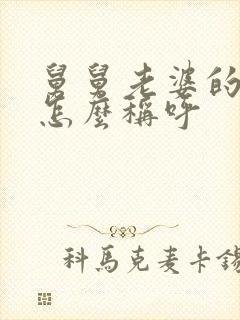 舅舅老婆的
怎麼稱呼
科馬克麦卡錫